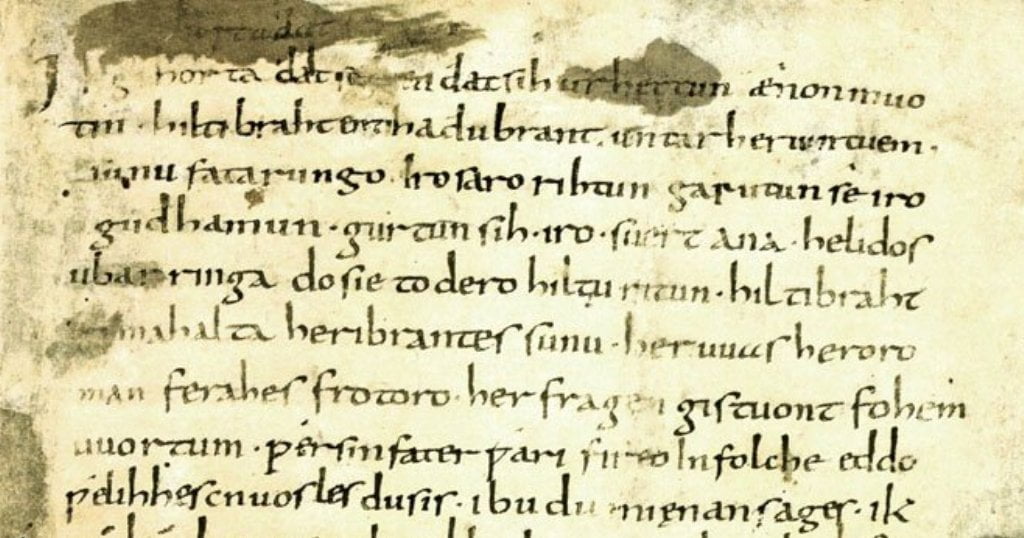 Ik gihorta dat seggen dat sih urhettun ænon muo
tin · hiltibraht enti hadubrant · untar heriun tuem ·
sunu fatarungo · iro saro rihtun garutun se iro
gudhamun · gurtun sih · iro · suert ana · helidos
ubar ringa do sie to dero hiltu ritun · hiltibraht
gimahalta heribrantes sunu · her uuas heroro
man ferahes frotoro · her fragen gistuont fohem
uuortum · ƿer sin fater ƿari fireo In folche eddo
ƿelihhes cnuosles du sis · ibu du mi ęnan sages · ik